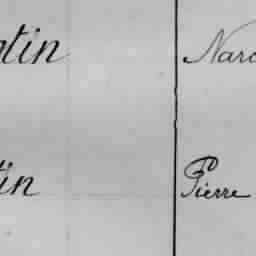 tin Narc
in Pierre